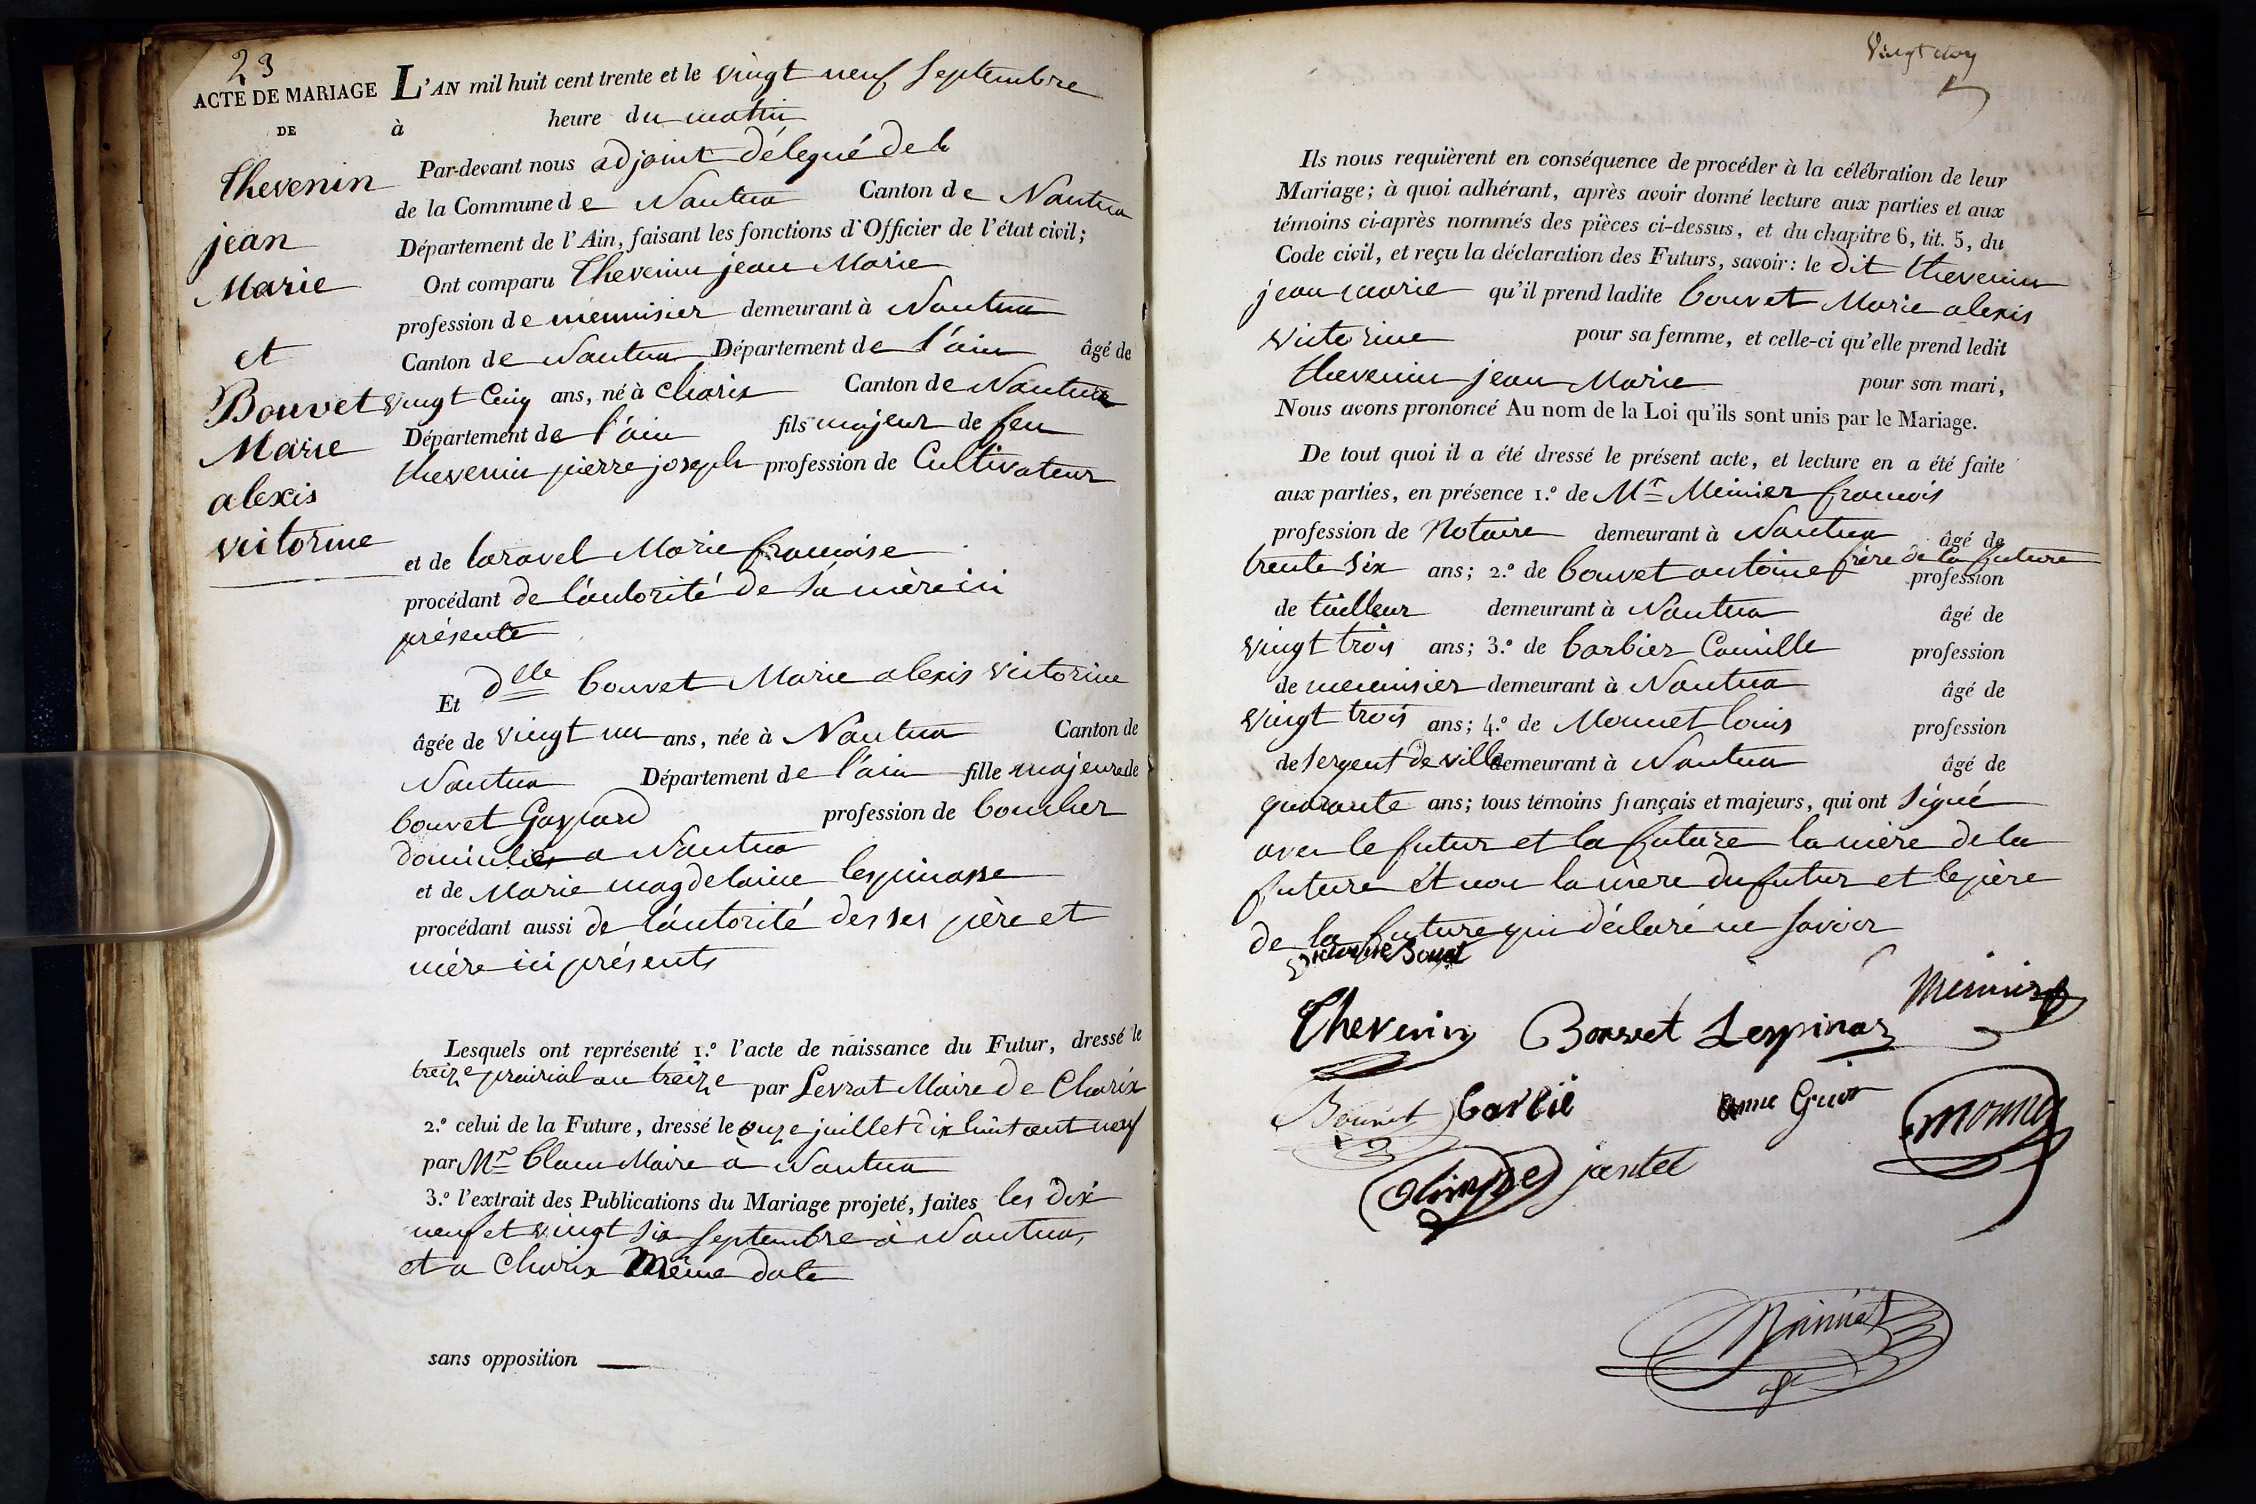 23
ACTE DE MARIAGE
DE
Thevenin
jean
Marie
et
Bouvet
Marie
alexis
victorine
L'AN mil huit cent trente et le vingt neuf Septembre
à heure du matin
Par-devant nous adjoint délegué de la
de la Commune de Nantua Canton de Nantua
Département de l'Ain, faisant les fonctions d'Officier de l'état civil;
Ont comparu Thevenin jean Marie
profession de menuisier demeurant à Nantua
Canton de Nantua Département de l'ain âgé de
vingt Cinq ans, né à charix Canton de Nantua
Département de l'ain fils majeur de feu
thevenin pierre joseph profession de Cultivateur
et de laravel Marie francoise
procédant de l'autorité de Sa mère ici
présente
Et dlle bouvet Marie alexis victorine
âgée de vingt un ans, née à Nantua Canton de
Nantua Département de l'ain fille majeure de
bouvet Gaspard profession de boucher
domicilié a Nantua
et de Marie magdelaine lespinasse
procédant aussi de l'autorité des ses père et
mère ici présents
Lesquels ont représenté 1.º l'acte de naissance du Futur, dressé le
treize prairial an treize par Levrat Maire de Charix
2.º celui de la Future, dressé le onze juillet dix huit cent neuf
par Mr blanc Maire a Nantua
3.º l'extrait des Publications du Mariage projeté, faites les dix
neuf et vingt six Septembre à Nantua,
et a Charix Même date
sans opposition
Vingt cinq
Ils nous requièrent en conséquence de procéder à la célébration de leur
Mariage; à quoi adhérant, après avoir donné lecture aux parties et aux
témoins ci-après nommés des pièces ci-dessus, et du chapitre 6, tit. 5, du
Code civil, et reçu la déclaration des Futurs, savoir: le dit thevenin
jean marie qu'il prend ladite bouvet Marie alexis
victorine pour sa femme, et celle-ci qu'elle prend ledit
thevenin jean Marie pour son mari,
Nous avons prononcé Au nom de la Loi qu'ils sont unis par le Mariage.
De tout quoi il a été dressé le présent acte, et lecture en a été faite
aux parties, en présence 1.º de Mr Meinier francois
profession de Notaire demeurant à Nantua âgé de
trente six ans; 2.º de bouvet antoine frère de la future profession
de tailleur demeurant à Nantua âgé de
vingt trois ans; 3.º de barbier Camille profession
de menuisier demeurant à Nantua âgé de
vingt trois ans; 4.º de Monnet louis profession
de sergent de ville demeurant à Nantua âgé de
quarante ans; tous témoins français et majeurs, qui ont signé
avec le futur et la future la mère de la
future et non la mère du futur et le père
de la future qui déclaré ne savoir
Victorine Bouvet
Thevenin Bouvet Lespinas Meinier
Bouvet barbié anne Guor monnet
olimpe jantet